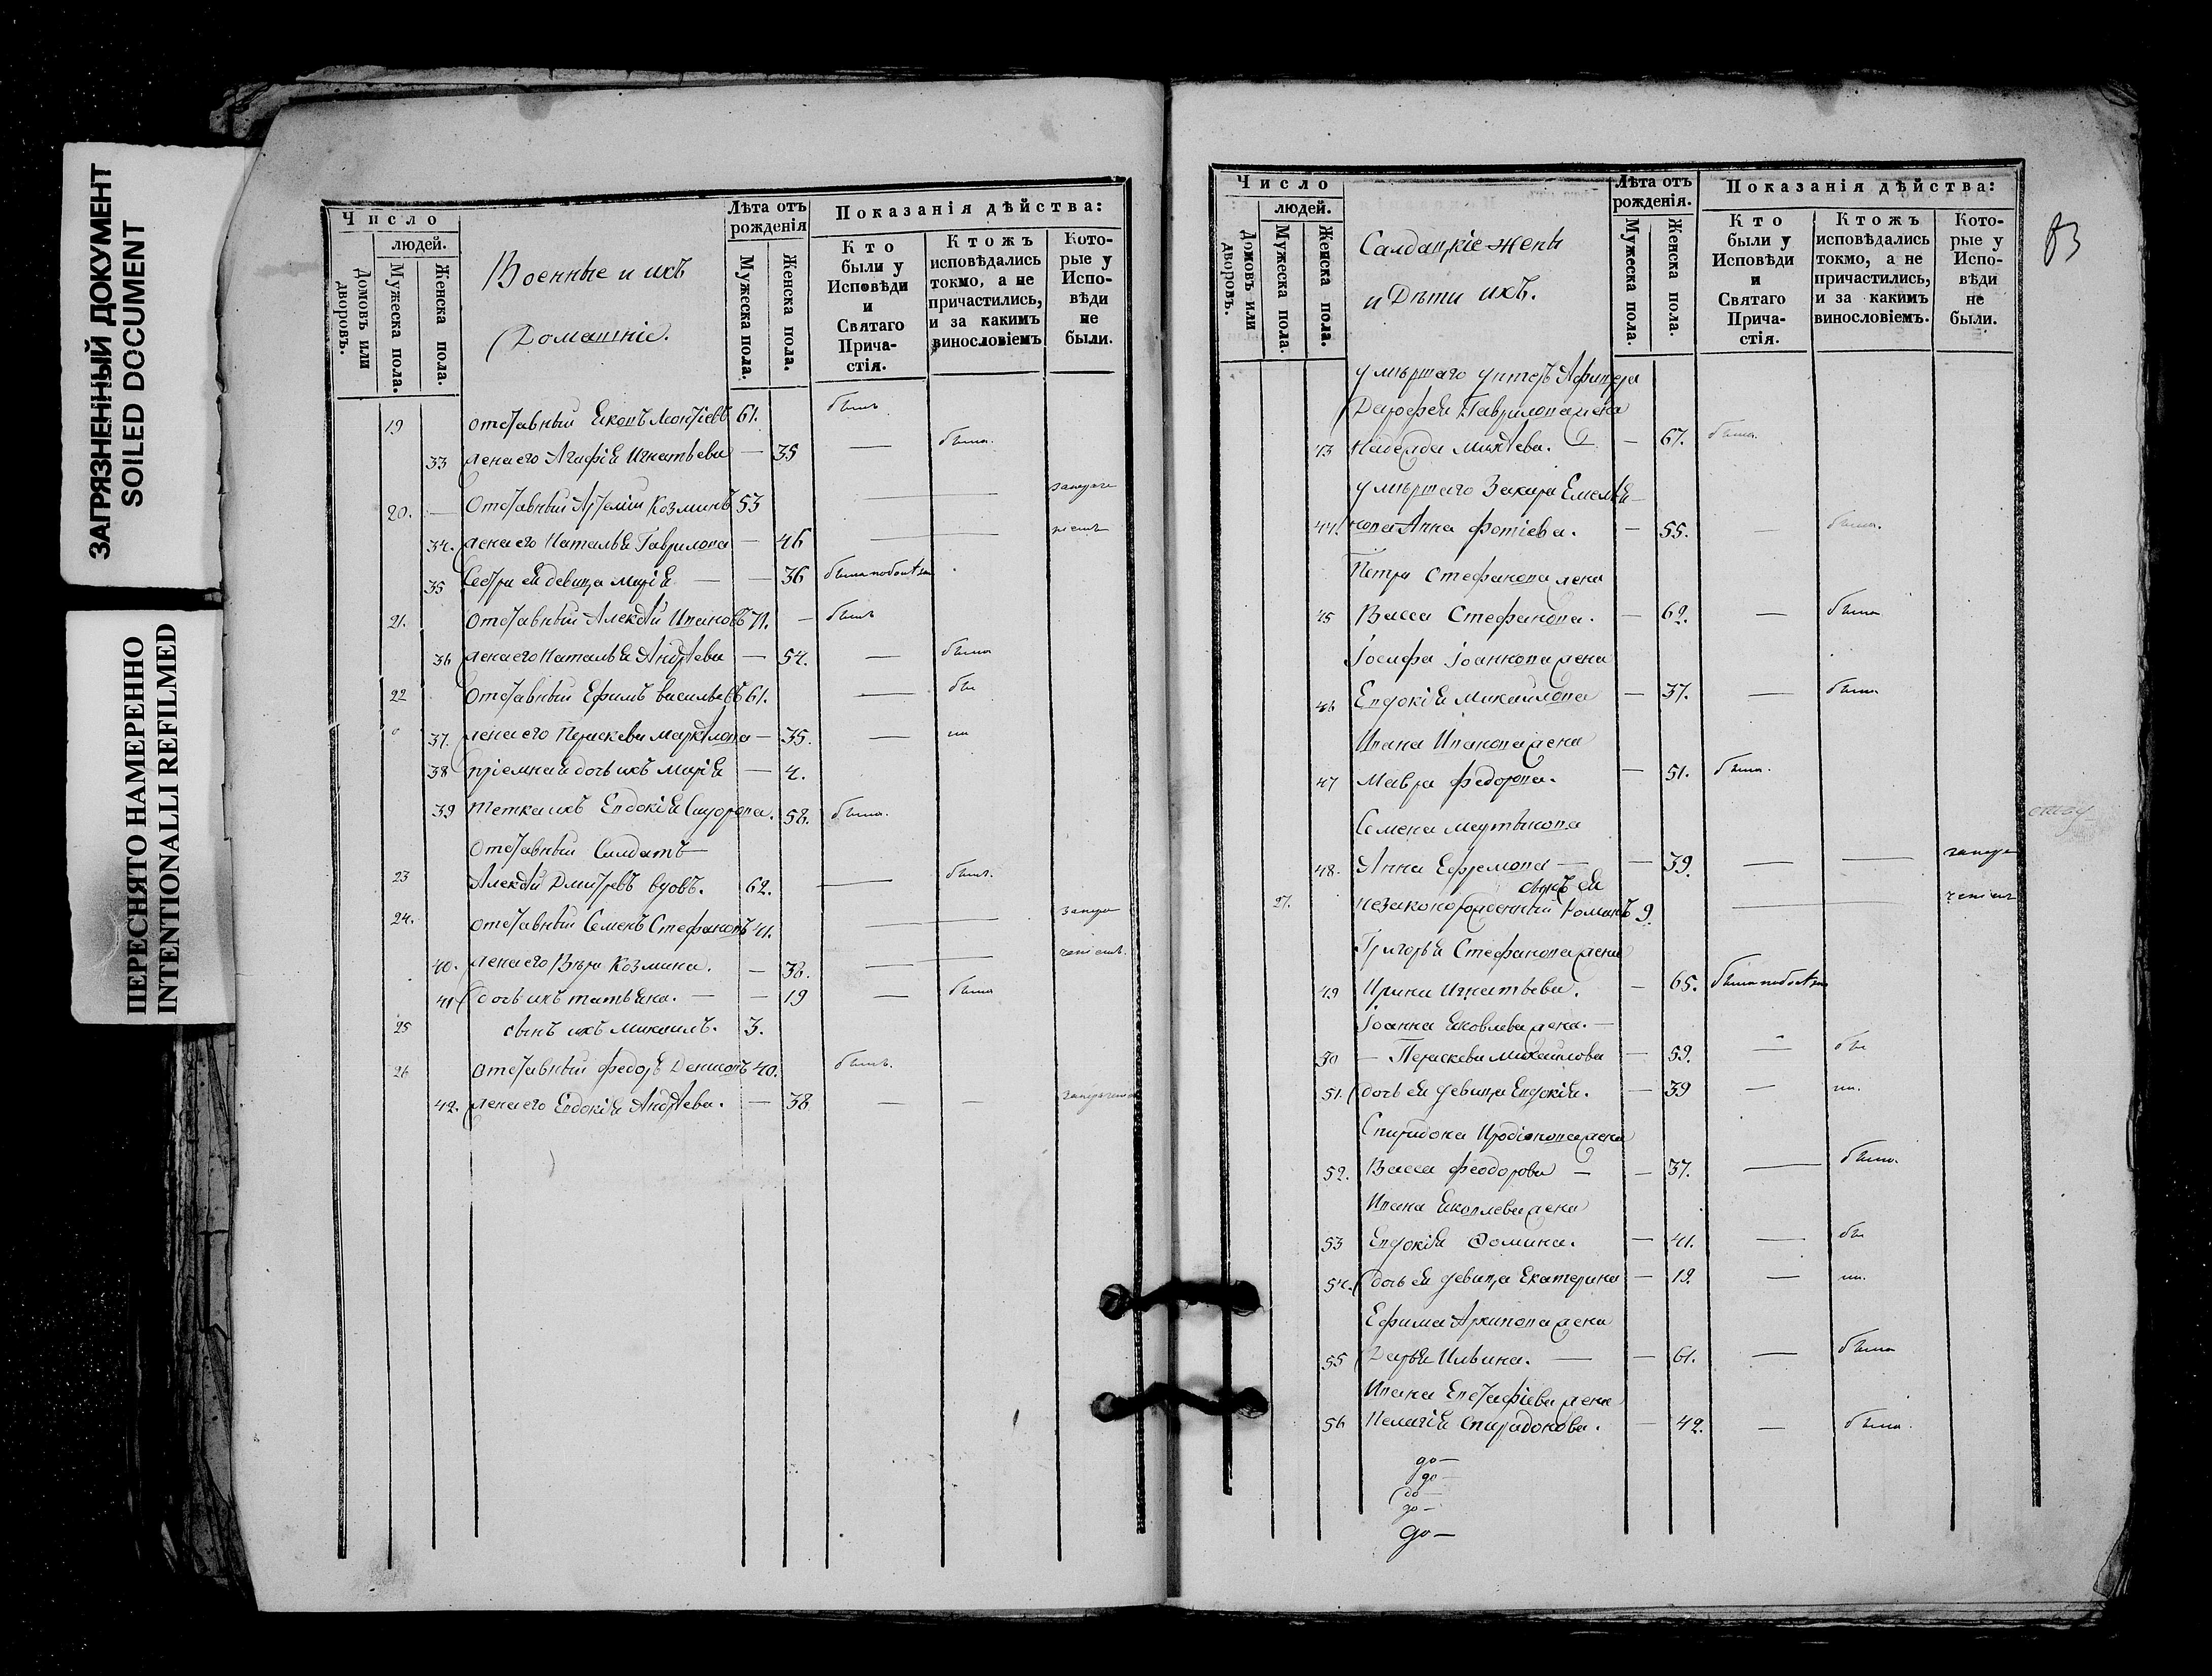 ЗАГРЯЗНЕННЫЙ ДОКУМЕНТ
SOILED DOCUMENT
ПЕРЕСНЯТО НАМЕРЕННО
INTENTIONALLI REFILMED
Число
людей.
Домовъ или дворовъ.
Мужеска пола.
Женска пола.
Военные и ихъ
Домашніе.
Лѣта отъ рожденія
Мужеска пола.
Женска пола.
Показанія дѣйства:
Кто были у Исповѣди и Святаго Причастія.
Ктожъ исповѣдались токмо, а не причастились, и за какимъ винословіемъ
Которые у Исповѣди не были.
19 отставный Яковъ Леонтіевъ 61. былъ
33 жена его Агафія Игнатьева — 35 — была.
20. — Отставный Артемій Козминъ 53 —
34. жена его Наталья Гаврилова — 46 —
35 Сестра ея девица Марія — — 36 была
21. отставный Алексѣй Ивановъ 71. — былъ
36 жена его Наталья Андрѣева — 54. — была
22 отставный Ефимъ Васильевъ 61. — бы
37. жена его Параскева — 35. — ли
38 пріемная дочь ихъ Марія — 4.
39 тетка ихъ Евдокія Сидорова. 58. была.
Отставный Салдатъ —
23 Алексѣй Дмитревъ вдовъ. 62. — былъ.
24. отставный Семенъ Стефановъ 41. —
40. жена его Вѣра Козмина. — 38. —
41 дочь ихъ татьяна. — — 19 — была
25 сынъ ихъ Михаилъ. 3.
26 отставный Федоръ Денисовъ 40. былъ.
42. жена его Евдокія Андрѣева. — 38 — —
Число
людей.
Домовъ или дворовъ.
Мужеска пола.
Женска пола.
Салдацкіе жены
и Дѣти ихъ.
Лѣта отъ рожденія.
Мужеска пола.
Женска пола.
Показанія дѣйства:
Кто были у Исповѣди и Святаго Причастія.
Ктожъ исповѣдались токмо, а не причастились, и за какимъ винословіемъ.
Которые у Исповѣди не были.
83
умершаго унтеръ Афицера
Дарофея Гаврилова жена
43 Надежда — 67. была.
умершаго Захара Емелья
44. нова Анна Фотіева. — 55. — была.
Петра Стефанова жена
45 Васса Стефанова. — 62. — была
Іосифа Іоаннова жена
46 Евдокія Михайлова — 37. — была
Ивана Иванова жена
47 Мавра Федорова. — 51. была.
Семена Мартынова
48. Анна Ефремова — — 39. — —
сынъ ея
27. незаконорожденный Романъ 9. —
Григорья Стефанова жена
49 Ирина Игнатьева. — 65. была
Іоанна Яковлева жена. —
50 — Параскева Михайлова — 59. — бы
51. дочь ея девица Евдокія. — 39 — ли.
Спиридона Иродіонова жена
52. Васса Феодорова — — 37. — была.
Ивана Яковлева жена
53 Евдокія Фомина. — 41. — бы
54. дочь ея девица Екатерина — 19. — ли.
Ефима Архипова жена
55 Дарья Ильина. — — 61. — была
Ивана Евстафіева жена
56 Пелагія Спиридонова. — 42. — была.
до —
до —
до —
до —
до —